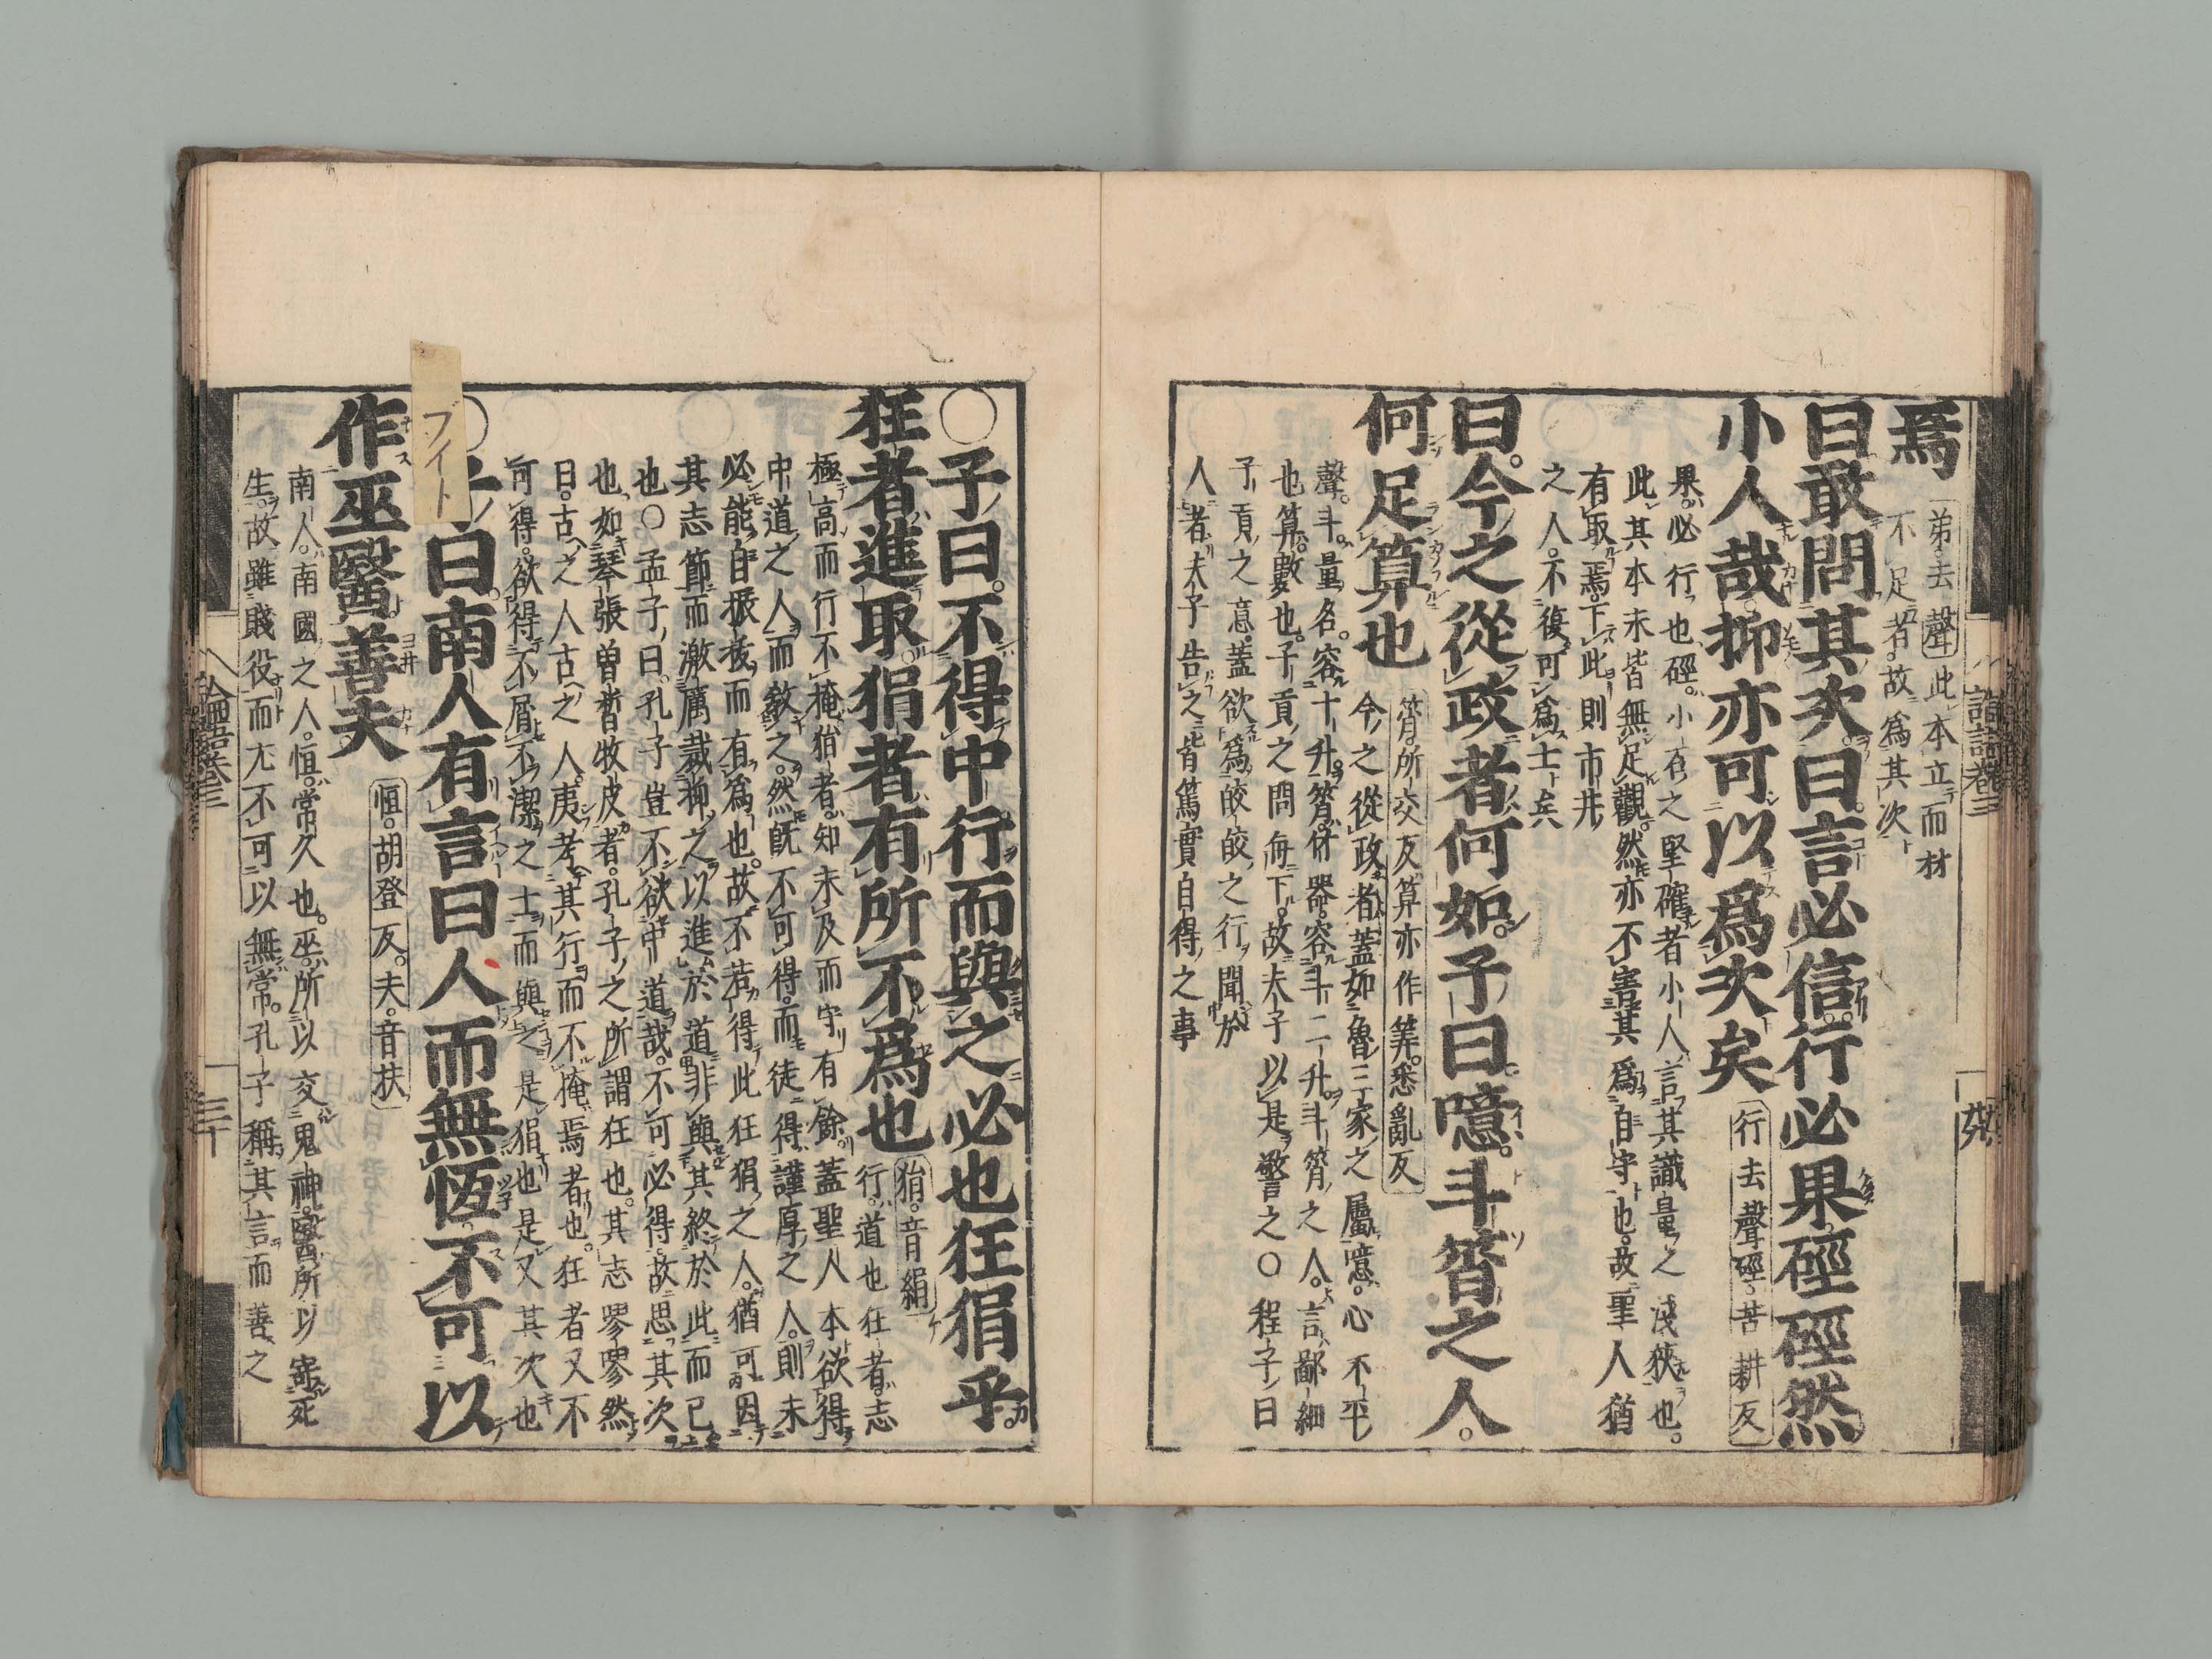 焉
弟去聲此本立而材
不足者故爲其次
曰敢問其次曰言必信行必果硜硜然
小人哉抑亦可以爲次矣
行去聲硜苦耕反
果必行也硜小石之堅確者小人言其識量之淺狹也
此其本末皆無足觀然亦不害其爲自守也故聖人猶
有取焉下此則市井
之人不復可爲士矣
曰今之從政者何如子曰噫斗筲之人
何足算也
筲所交反算亦作筭悉亂反
今之從政者蓋如魯三家之屬噫心不平
聲斗量名容十升筲竹器容斗二升斗筲之人言鄙細
也算數也子貢之問每下故夫子以是警之○程子曰
子貢之意蓋欲爲皎皎之行聞於
人者夫子告之皆篤實自得之事
論語卷三
○子曰不得中行而與之必也狂狷乎
狂者進取狷者有所不爲也
狷音絹
行道也狂者志
極高而行不掩狷者知未及而守有餘蓋聖人本欲得
中道之人而敎之然既不可得而徒得謹厚之人則未
必能自振拔而有爲也故不若得此狂狷之人猶可因
其志節而激厲裁抑之以進於道非與其終於此而已
也○孟子曰孔子豈不欲中道哉不可必得故思其次
也如琴張曾晳牧皮者孔子之所謂狂也其志嘐嘐然
曰古之人古之人夷考其行而不掩焉者也狂者又不
可得欲得不屑不潔之士而與之是狷也是又其次也
ブイト
○子曰南人有言曰人而無恆不可以
作巫醫善夫
恒胡登反夫音扶
南人南國之人恒常久也巫所以交鬼神醫所以寄死
生故雖賤役而尤不可以無常孔子稱其言而善之
論語卷三
三十